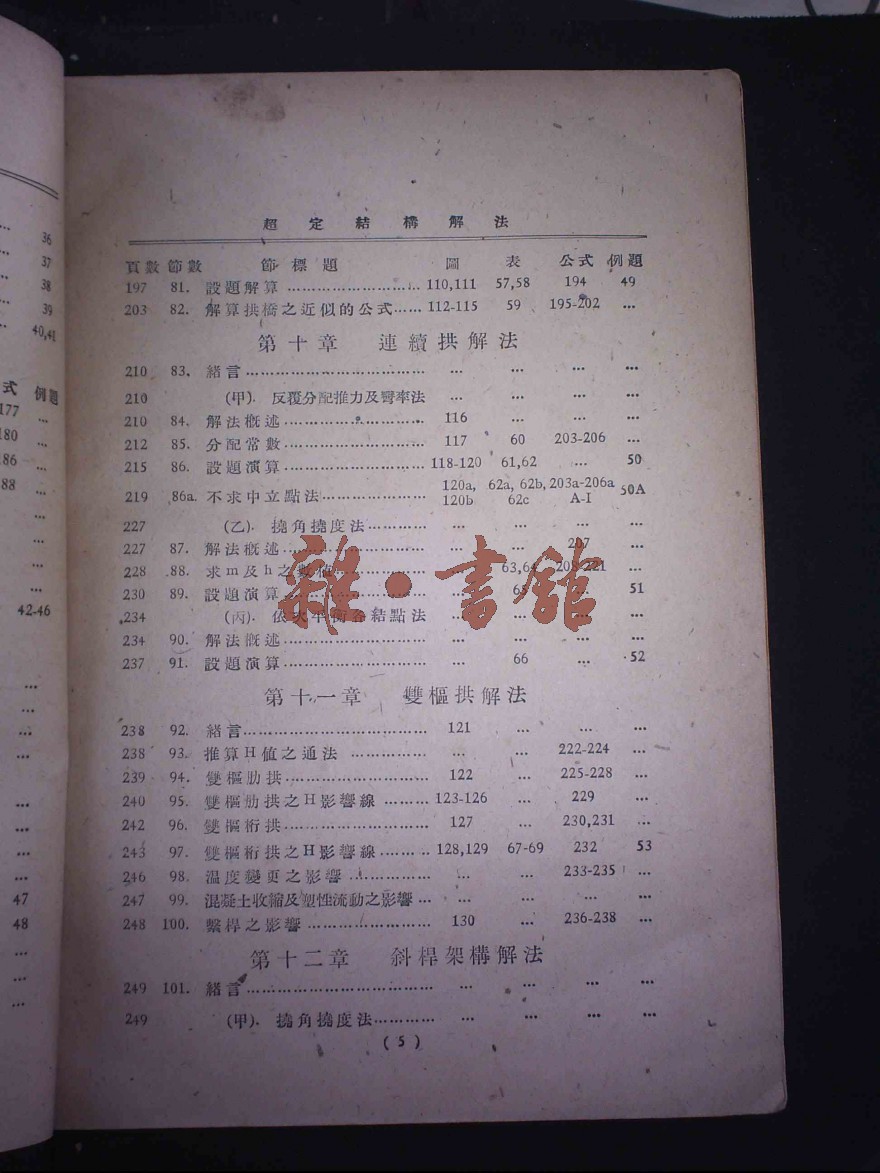 36
37
38
39
40,41
式 例題
177 ...
180 ...
186 ...
88 ...
...
...
...
42-46
...
...
...
...
...
...
...
...
47
48
...
...
...
超定結構解法
頁數 節數 節標題 圖 表 公式 例題
197 81. 設題解算 ... 110,111 57,58 194 49
203 82. 解算拱橋之近似的公式 ... 112-115 59 195-202 ...
第十章 連續拱解法
210 83. 緒言 ... ... ... ... ...
210 (甲). 反覆分配推力及彎率法 ... ... ... ...
210 84. 解法概述 ... 116 ... ... ...
212 85. 分配常數 ... 117 60 203-206 ...
215 86. 設題演算 ... 118-120 61,62 ... 50
219 86a. 不求中立點法 ... 120a, 120b 62a, 62b, 62c 203a-206a A-I 50A
227 (乙). 撓角撓度法 ... ... ... ... ...
227 87. 解法概述 ... ... ... 207 ...
228 88. 求m及h之數值 ... 63,64 208-221 ...
230 89. 設題演算 ... ... 65 ... 51
234 (丙). 依次平衡各結點法 ... ... ... ...
234 90. 解法概述 ... ... ... ... ...
237 91. 設題演算 ... ... 66 ... 52
第十一章 雙樞拱解法
238 92. 緒言 ... 121 ... ... ...
238 93. 推算H值之通法 ... ... ... 222-224 ...
239 94. 雙樞肋拱 ... 122 ... 225-228 ...
240 95. 雙樞肋拱之H影響線 ... 123-126 ... 229 ...
242 96. 雙樞桁拱 ... 127 ... 230,231 ...
243 97. 雙樞桁拱之H影響線 ... 128,129 67-69 232 53
246 98. 温度變更之影響 ... ... ... 233-235 ...
247 99. 混凝土收縮及塑性流動之影響 ... ... ... ... ...
248 100. 繫桿之影響 ... 130 ... 236-238 ...
第十二章 斜桿架構解法
249 101. 緒言 ... ... ... ... ...
249 (甲). 撓角撓度法 ... ... ... ... ...
( 5 )
雜·書館